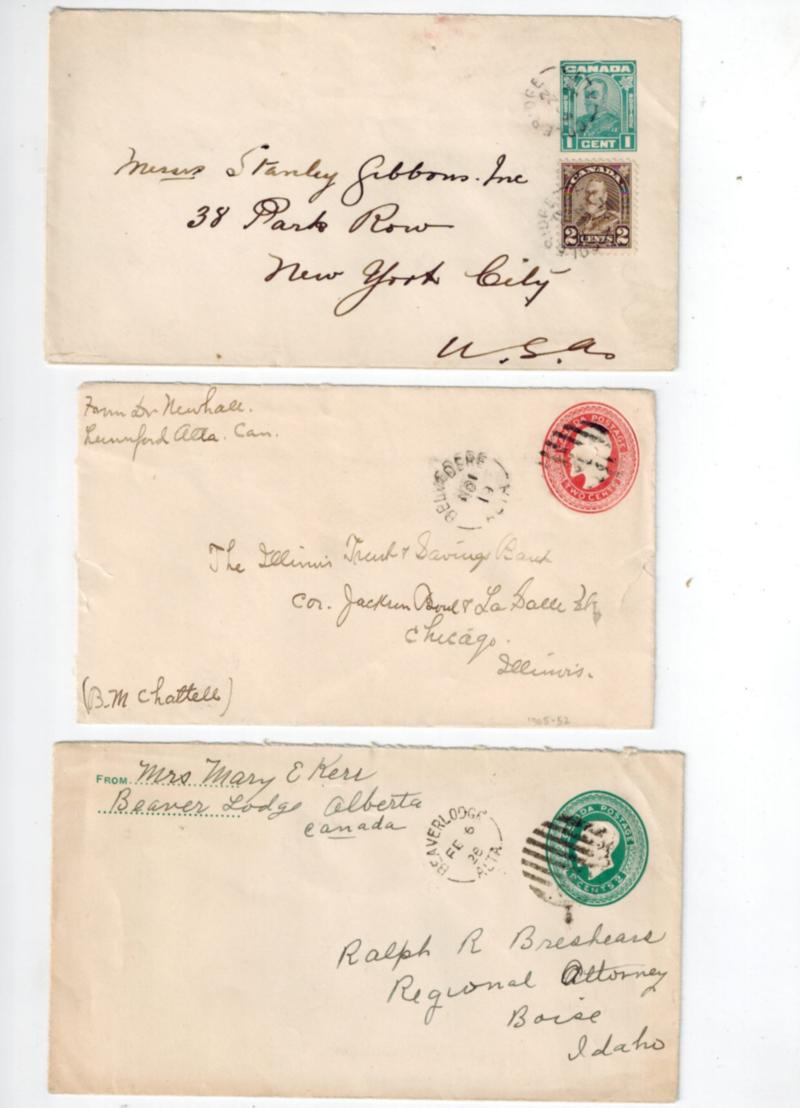 CANADA
1 CENT 1
CANADA
2 CENTS 2
Messrs Stanley Gibbons. Inc
38 Park Row
New York City
U.S.A.
From Dr Newhall.
Lunnford Alta. Can.
BELVEDERE
ALTA
TWO CENTS
The Illinois Trust & Savings Bank
Cor. Jackson Boul & La Salle
Chicago.
Illinois.
(B. M Chattell)
1905-52
FROM Mrs Mary E Kerr
Beaver Lodge Alberta
Canada
BEAVERLODGE
FE 6
28
ALTA
CANADA POSTAGE
2 CENTS 2
Ralph R Breshears
Regional Attorney
Boise
Idaho